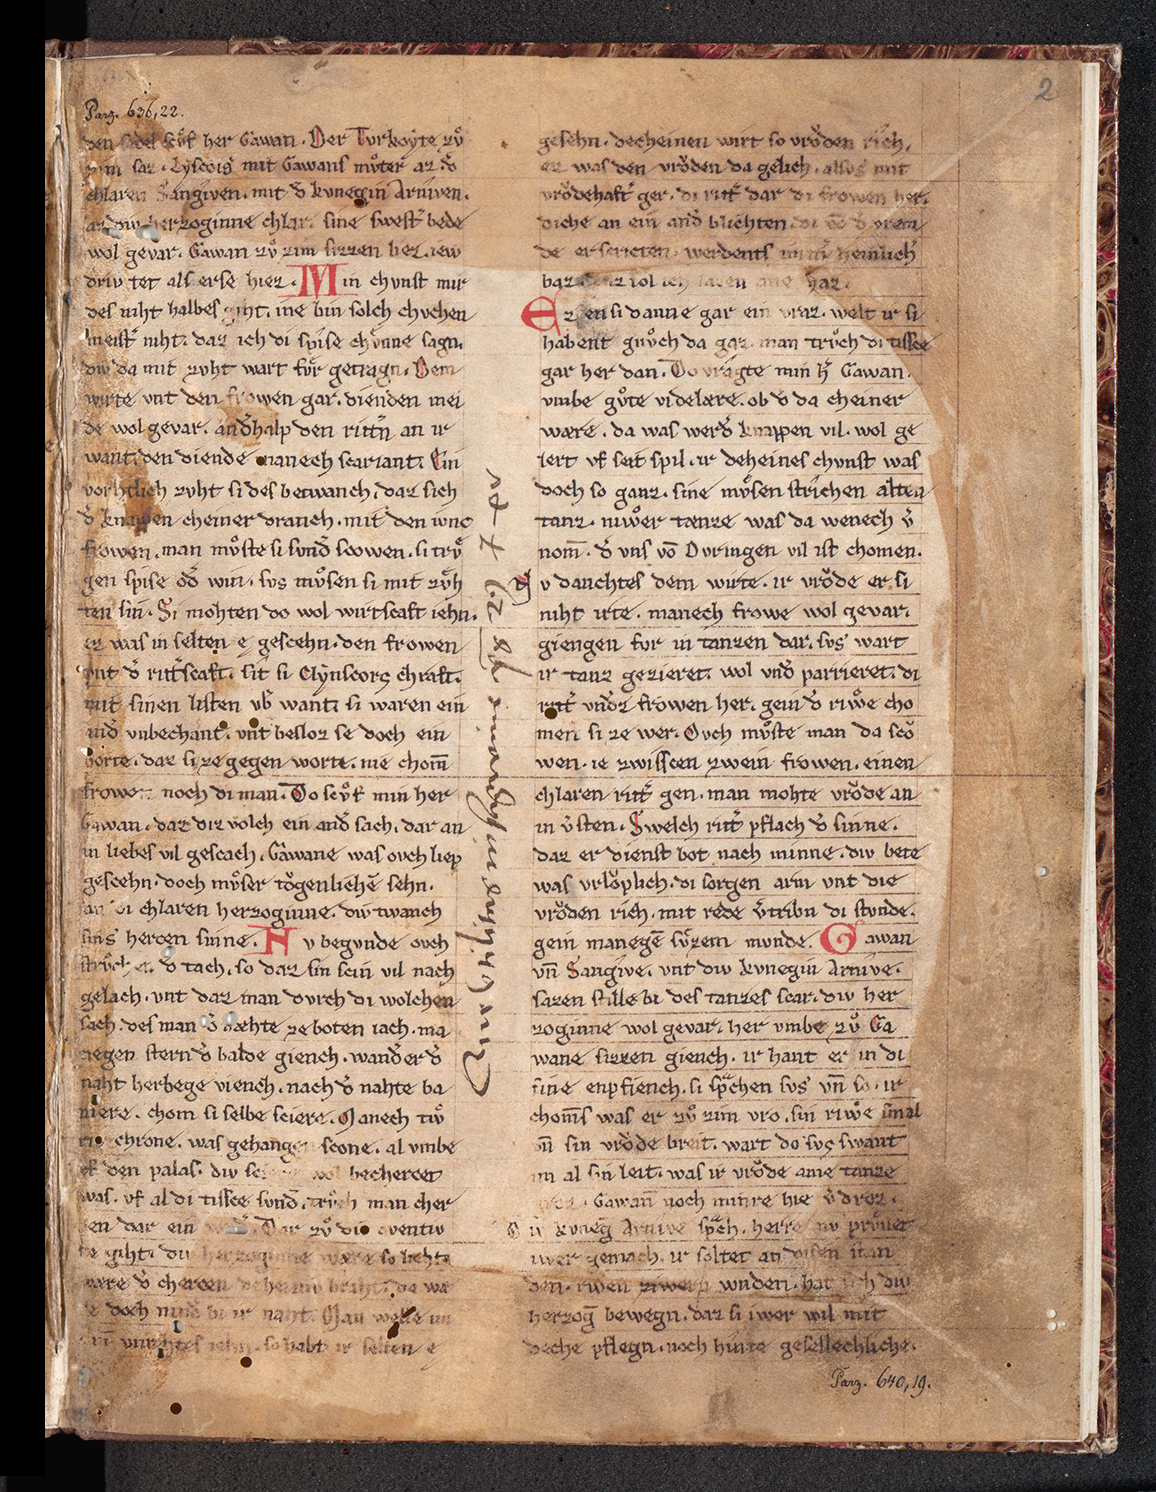 2
Parz. 636,22.
den sedel kos her Gawan. Der Turkoyte zů
zim saz. Lyscois mit Gawans můter az. d̾
chlaren Sangiven. mit d̾ kvnegin Arniven.
az div herzoginne chlar. sine swest̾ bede
wol gevar. Gawan zů zim sizzen liez. iew
driv tet als erse hiez. Min chvnst mir
des niht halbes giht. ine bin solch chvchen
meist̾ niht. daz ich di spise chvnne sagn.
div da mit zvht wart fůr getragn. Dem
wirte vnt den frowen gar. dienden mei
de wol gevar. and̾halp den ritt̾n an ir
want. den diende manech scariant. Ein
vorhtlich zvht si des betwanch. daz sich
d̾ knappen cheiner dranch. mit den ivnc
frowen. man můste si svnd̾ scowen. si trů
gen spise od̾ win. svs můsen si mit zůh
ten sin. Si mohten do wol wirtscaft iehn.
ez was in selten e gescehn. den frowen
vnt d̾ ritt̾scaft. sit si Clynscors chraft.
mit sinen listen vb̾ want. si waren ein
and̾ vnbechant. vnt besloz se doch ein
porte. daz si ze gegen worte. nie chom̄
frowen noch di man. Do scůf min her
Gawan. daz diz volch ein and̾ sach. dar an
in liebes vil gescach. Gawane was ovch liep
gescehn. doch můser tǒgenliche̅ sehn.
an di chlaren herzoginne. div twanch
sins hercen sinne. Nv begvnde ovch
strůchen d̾ tach. so daz sin scin vil nach
gelach. vnt daz man dvrch di wolchen
sach. des man d̾ næhte ze boten iach. ma
negen stern d̾ balde giench. wand̾ er d̾
naht herbege viench. nach d̾ nahte ba
niere. chom si selbe sciere. Manech tiw̾
riv chrone. was gehangen scone. al vmbe
vf den palas. div wol becherzet
was. vf al di tissce svnd̾. trůch man cher
zen dar ein Dar zů div aventiv
te giht. div herzoginne wære so lieht.
wære d̾ chercen deheiniv braht. da wæ
re doch nind̾ bi ir naht. Man wolle im
vnrehtes iehn. so habt ir selten e
gesehn. decheinen wirt so vrǒden rich.
ez was den vrǒden da gelich. alsvs mit
vrǒdehaft̾ ger. di ritt̾ dar di frowen her.
diche an ein and̾ blichten. di vo̅ d̾ vrem
de erscricten. werdents heinlich̾
baz. daz sol ich lazen ane haz.
Ez ensi danne gar ein vraz. welt ir si
habent gnůch da gaz. man trůch di tissce
gar her dan. Do vragte min h̾ Gawan.
vmbe gůte videlære. ob d̾ da cheiner
wære. da was werd̾ knappen vil. wol ge
lert vf seit spil. ir deheines chvnst was
doch so ganz. sine můsen strichen alten
tanz. niwer tænze was da wenech v̾
nom̅. d̾ vns vo̅ Dvringen vil ist chomen.
Nv danchtes dem wirte. ir vrǒde er si
niht irte. manech frowe wol gevar.
giengen for in tanzen dar. svs wart
ir tanz gezieret. wol vnd̾ parrieret. di
ritt̾ vnd̾z frowen her. gein d̾ riwe cho
men si ze wer. Ovch můste man da sco̅
wen. ie zwisscen zwein frowen. einen
chlaren ritt̾ gen. man mohte vrǒde an
in v̾sten. Swelch ritt̾ pflach d̾ sinne.
daz er dienst bot nach minne. div bete
was vrlǒplich. di sorgen arm vnt die
vrǒden rich. mit rede v̾tribn di stvnde.
gein manege̅ sůzem mvnde. Gawan
vn̅ Sangive. vnt div kvnegin Arnive.
sazen stille bi des tanzes scar. div her
zoginne wol gevar. her vmbe zů Ga
wane sizzen giench. ir hant er in di
sine enpfiench. si sp̾achen svs vn̅ so. ir
chom̅s was er zů zim vro. sin riwe smal
vn̅ sin vrǒde breit. wart do svs swant
im al sin leit. was ir vrǒde ame tanze
groz. Gawan̅ noch minre hie v̾droz.
Div kvneg̅ Arnive sp̾ch. herre nv průvet
iwer gemach. ir soltet an disen stun
den. riwen ziwern wnden. hat sich div
herzog̅ bewegn. daz si iwer wil mit
deche pflegn. noch hinte gesellechliche.
Parz. 640,19.